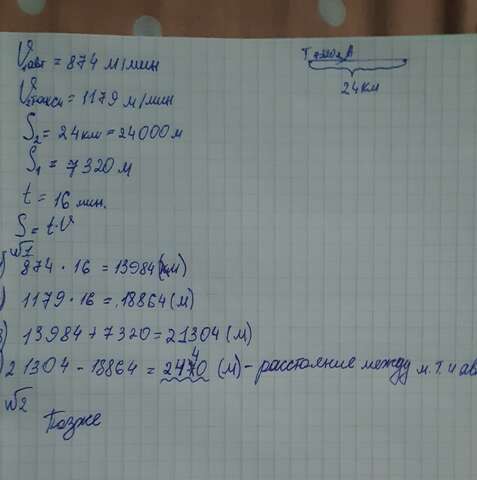 V₁авт = 874 м/мин
V₂такси = 1179 м/мин
S₂ = 24км = 24000 м
S₁ = 7320 м
t = 16 мин.
S = t·V
T 7320м А
24 км
№1
) 874 · 16 = 13984 (м)
) 1179 · 16 = 18864 (м)
3) 13984 + 7320 = 21304 (м)
) 21304 - 18864 = 2440 (м) - расстояние между м. т. и ав
№2
Позже